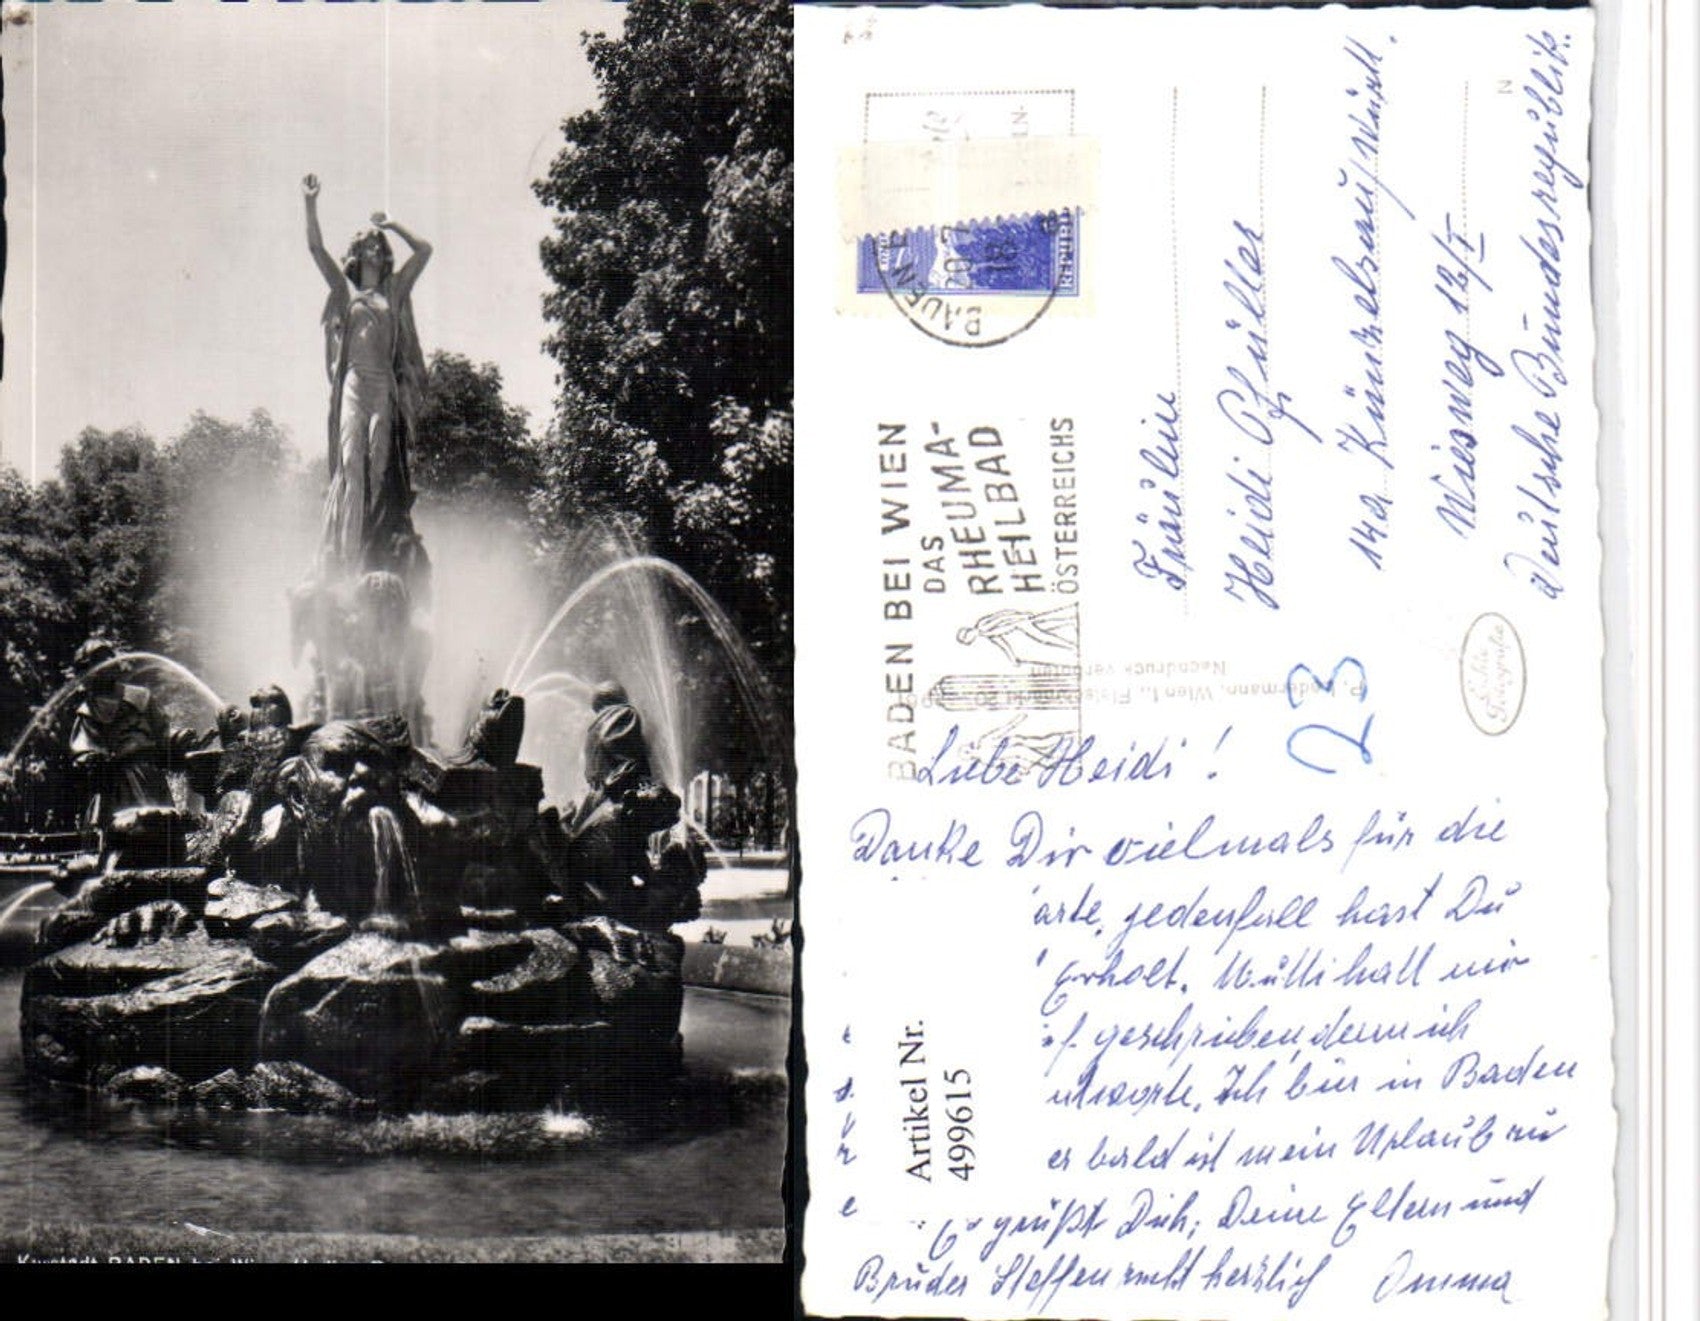 Kurstadt BADEN bei Wien
BADEN BEI WIEN
DAS
RHEUMA-
HEILBAD
ÖSTERREICHS
BADEN
20.7.
18
Fräulein
Heidi Pfüller
14a Künzelsau/Württ.
Wiesweg 12/I
Deutsche Bundesrepublik.
P. Ledermann, Wien I., Fleischmarkt 20
Nachdruck verboten
Echte
Fotografie
23
Liebe Heidi!
Danke Dir vielmals für die
arte, jedenfall hast Du
Erholt. Mutti hatt mir
geschrieben, denn ich
Ich bin in Baden
er bald ist mein Urlaub zu
Es grüßt Dich, Deine Eltern und
Bruder Steffen recht herzlich Omma
Artikel Nr.
499615